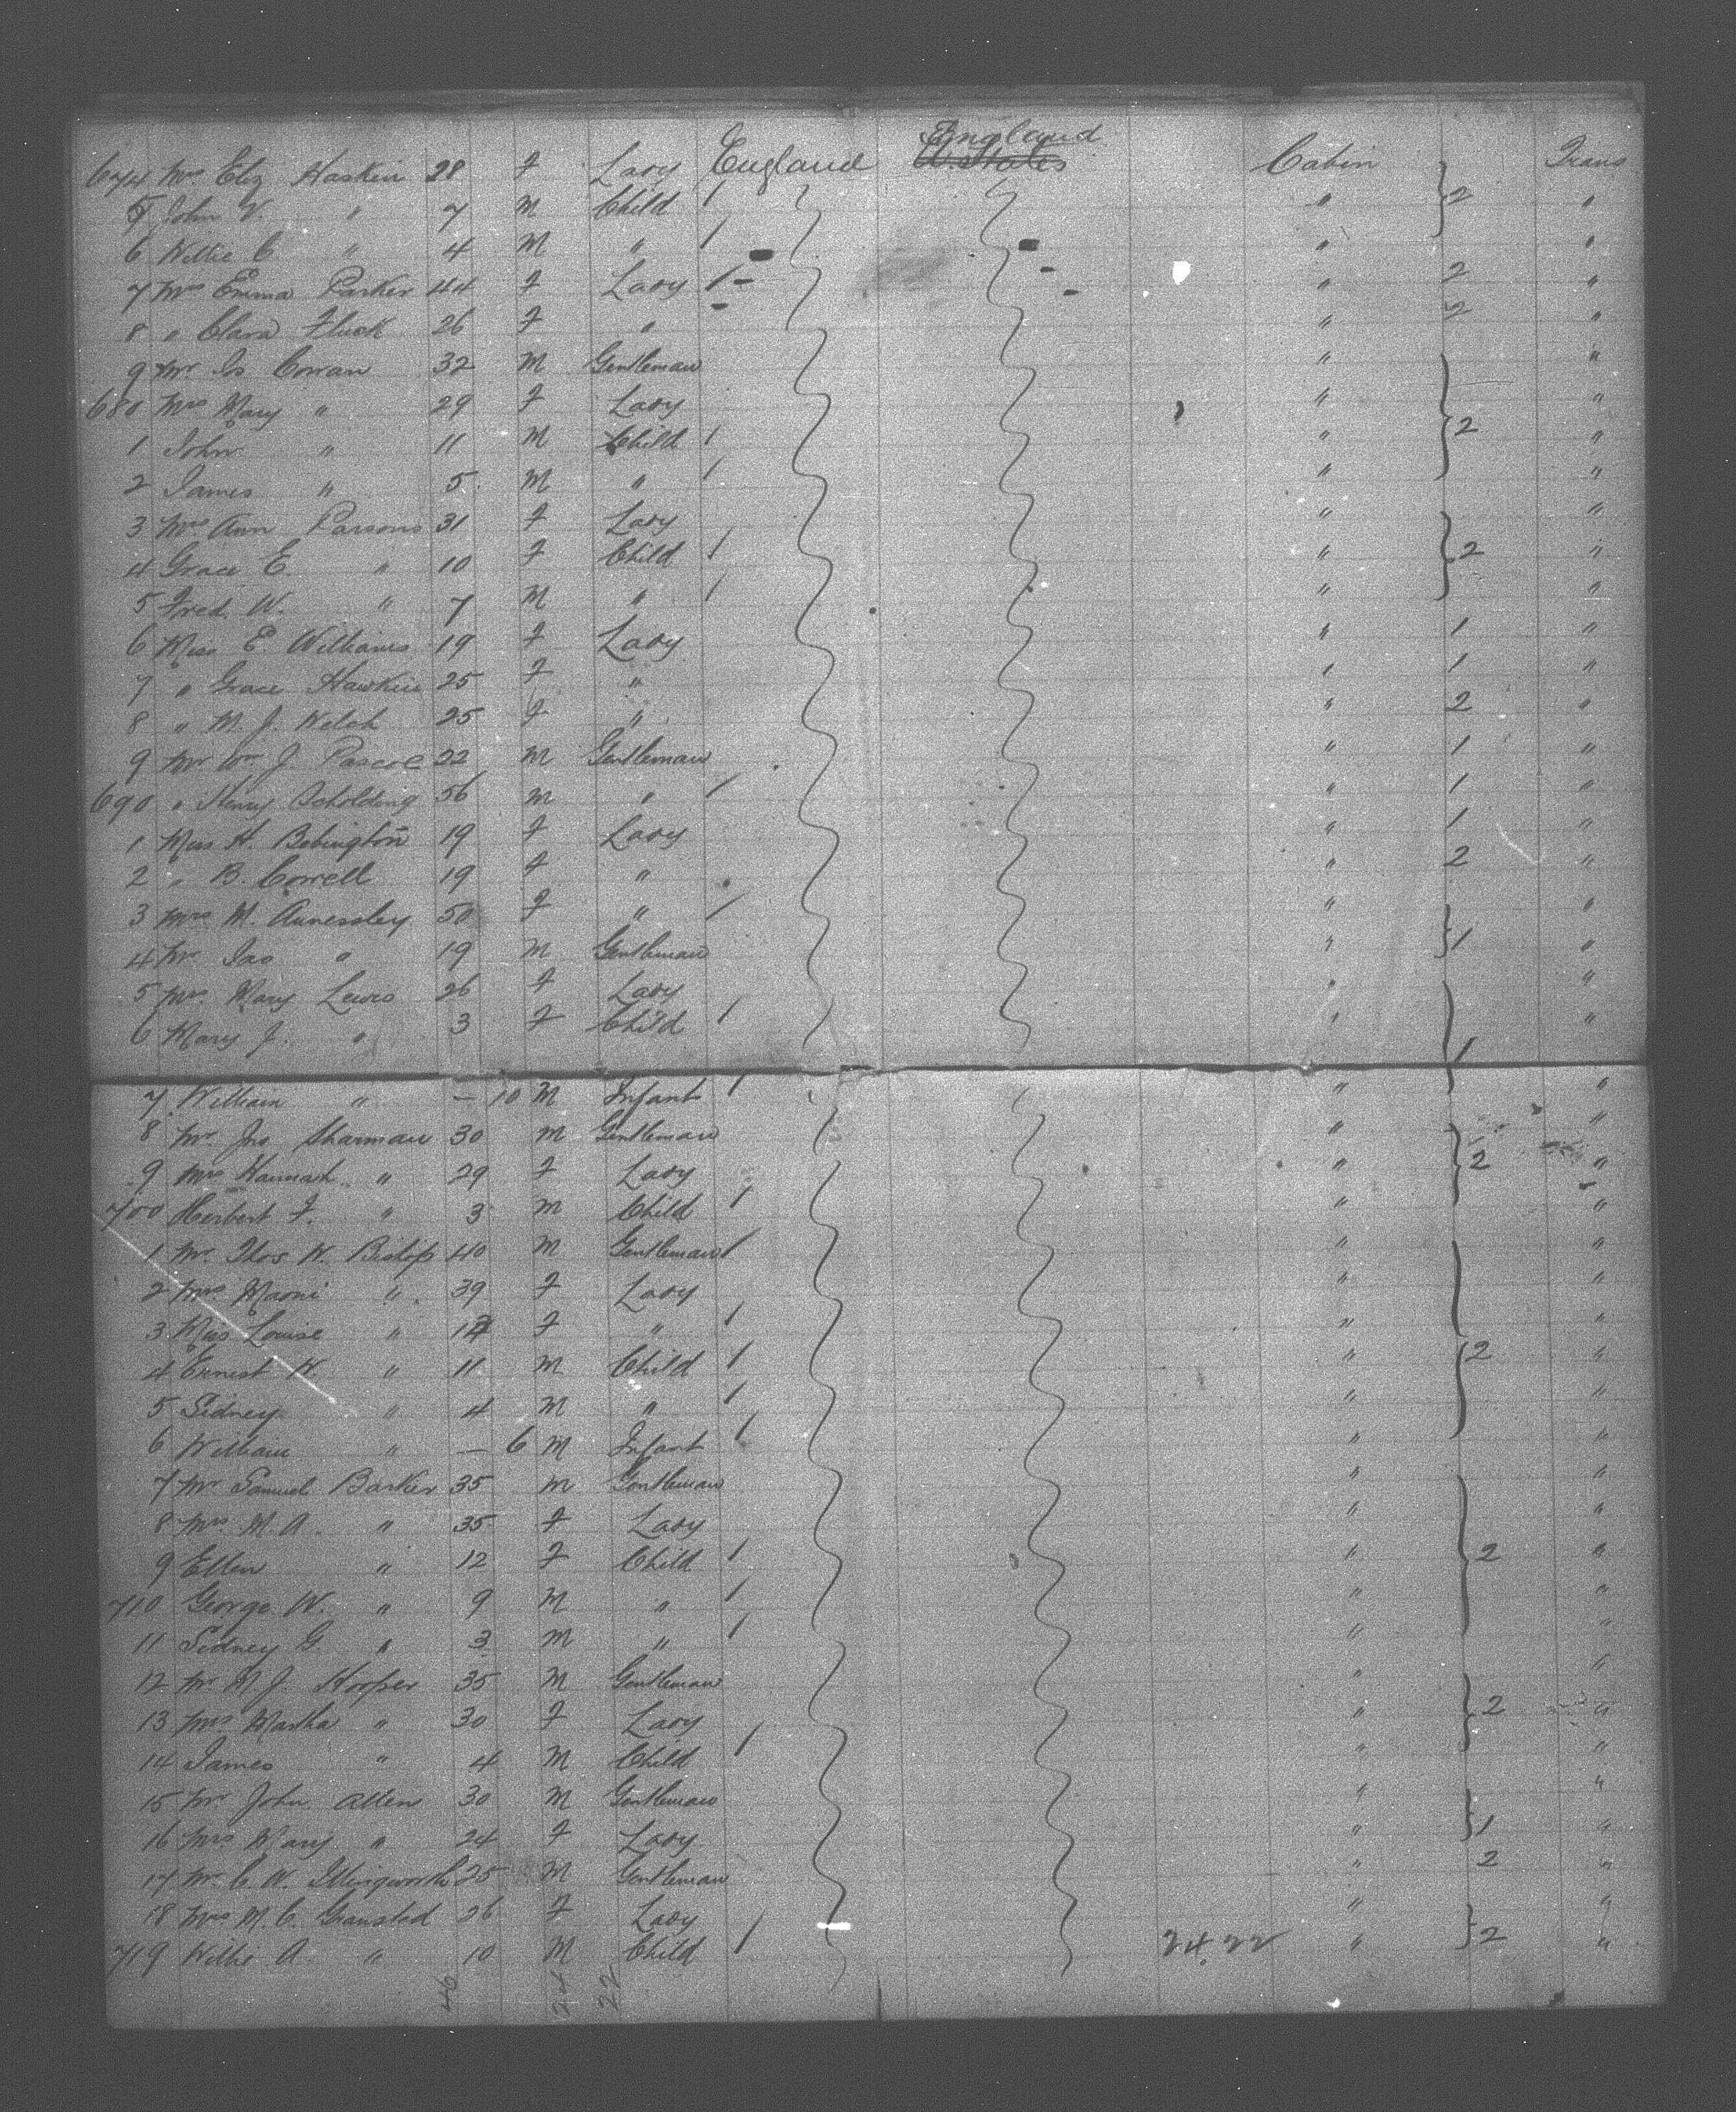 674 Mrs Eliz Haskin 28 F Lady England England U. States Cabin Trans
5 John V. " 7 M Child / " 2 "
6 Willie C " 4 M " / " "
7 Mrs Emma Parker 44 F Lady / " 2 "
8 " Clara Fluck 26 F " " 2 "
9 Mr Js Cowan 32 M Gentleman " "
680 Mrs Mary " 29 F Lady " "
1 John " 11 M Child / " 2 "
2 James " 5 M " / " "
3 Mrs Ann Parsons 31 F Lady " "
4 Grace E. " 10 F Child / " 2 "
5 Fred. W. " 7 M " / " "
6 Miss E Williams 19 F Lady " 1 "
7 " Grace Hawkin 25 F " " 1 "
8 " M. J. Welch 25 F " " 2 "
9 Mr Wm J. Pascoe 22 M Gentleman " 1 "
690 " Henry Scholding 56 M " / " 1 "
1 Miss H. Bebington 19 F Lady " 1 "
2 " B. Correll 19 F " " 2 "
3 Mrs M. Annessley 50 F " / " "
4 Mr Jas " 19 M Gentleman " 1 "
5 Mrs Mary Lewis 26 F Lady " "
6 Mary J. " 3 F Child / " 1 "
7 William " — 10 M Infant / " "
8 Mr. Jno Sharman 30 M Gentleman " "
9 Mrs Hannah " 29 F Lady " 2 "
700 Herbert F. " 3 M Child / " "
1 Mr. Thos W. Bishop 40 M Gentleman / " "
2 Mrs Naomi " 39 F Lady " "
3 Miss Louise " F " / " "
4 Ernest W. " 11 M Child / " 2 "
5 Sidney " 4 M " / " "
6 William " — 6 M Infant / " "
7 Mr Samuel Barker 35 M Gentleman " "
8 Mrs M. A. " 35 F Lady " "
9 Ellen " 12 F Child / " 2 "
710 George W. " 9 M " / " "
11 Sidney G. " 3 M " / " "
12 Mr N. J. Hooper 35 M Gentleman " "
13 Mrs Martha " 30 F Lady " 2 "
14 James " 4 M Child / " "
15 Mr John Allen 30 M Gentleman " "
16 Mrs Mary " 24 F Lady " 1 "
17 Mr. C. W. Illingworth 25 M Gentleman " 2 "
18 Mrs M. C. Gransted 26 F Lady " "
719 Willie A. " 10 M Child / 24.22 " 2 "
46 24 22